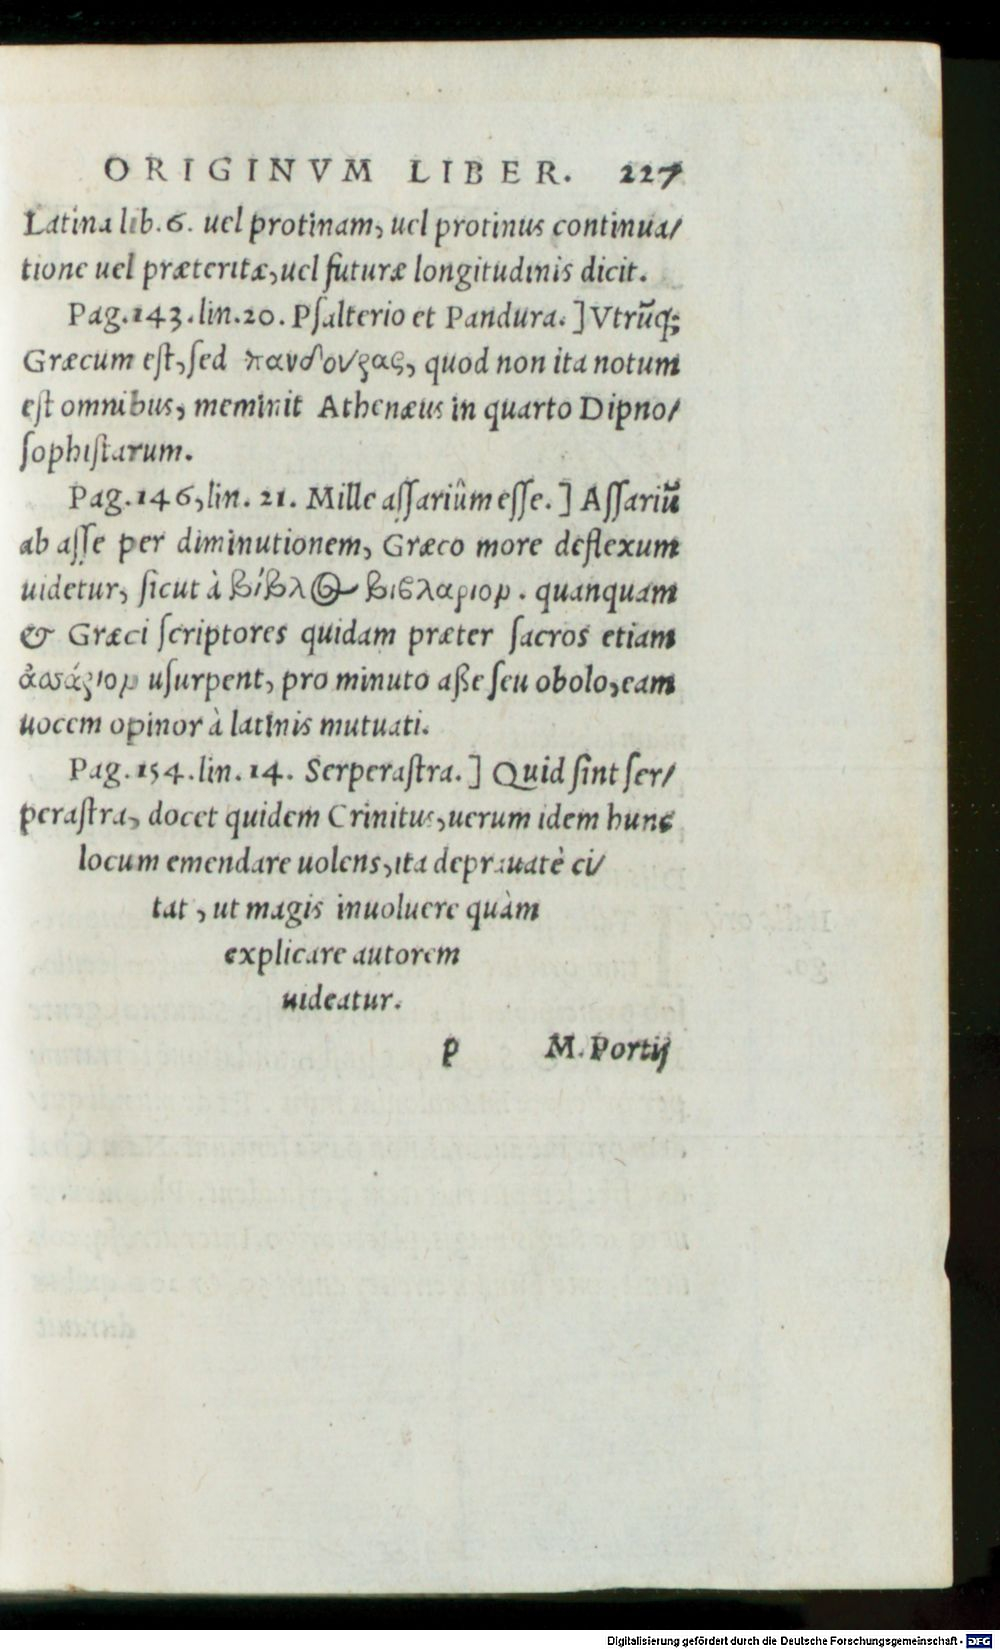 ORIGINVM LIBER. 227
Latina lib. 6. uel protinam, uel protinus continua/
tione uel præteritæ, uel futuræ longitudinis dicit.
Pag. 143. lin. 20. Pſalterio et Pandura. ] Vtrũq;
Græcum eſt, ſed πανδούρας, quod non ita notum
eſt omnibus, meminit Athenæus in quarto Dipno/
ſophiſtarum.
Pag. 146, lin. 21. Mille aſſariûm eſſe. ] Aſſariũ
ab aſſe per diminutionem, Græco more deflexum
uidetur, ſicut à βίβλος βιβλαριον. quanquam
& Græci ſcriptores quidam præter ſacros etiam
ἀσσάριον uſurpent, pro minuto aße ſeu obolo, eam
uocem opinor à latinis mutuati.
Pag. 154. lin. 14. Serperaſtra. ] Quid ſint ſer/
peraſtra, docet quidem Crinitus, uerum idem hunc
locum emendare uolens, ita deprauatè ci/
tat, ut magis inuoluere quàm
explicare autorem
uideatur.
p M. Portij
Digitalisierung gefördert durch die Deutsche Forschungsgemeinschaft - DFG